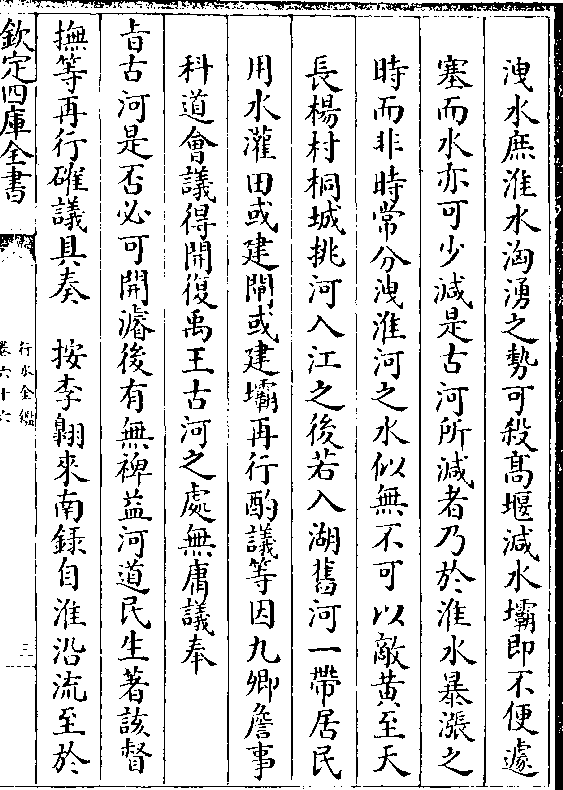 洩水庶淮水洶湧之勢可殺髙堰減水壩即不便遽
塞而水亦可少減是古河所減者乃於淮水暴漲之
時而非時常分洩淮河之水似無不可以敵黄至天
長楊村桐城挑河入江之後若入湖舊河一帶居民
用水灌田或建閘或建壩再行酌議等因九卿詹事
科道會議得開復禹王古河之處無庸議奉
㫖古河是否必可開濬後有無裨益河道民生著該督
撫等再行確議具奏　按李翺來南錄自淮沿流至於
欽定四庫全書
行水金鑑
卷六十六
三